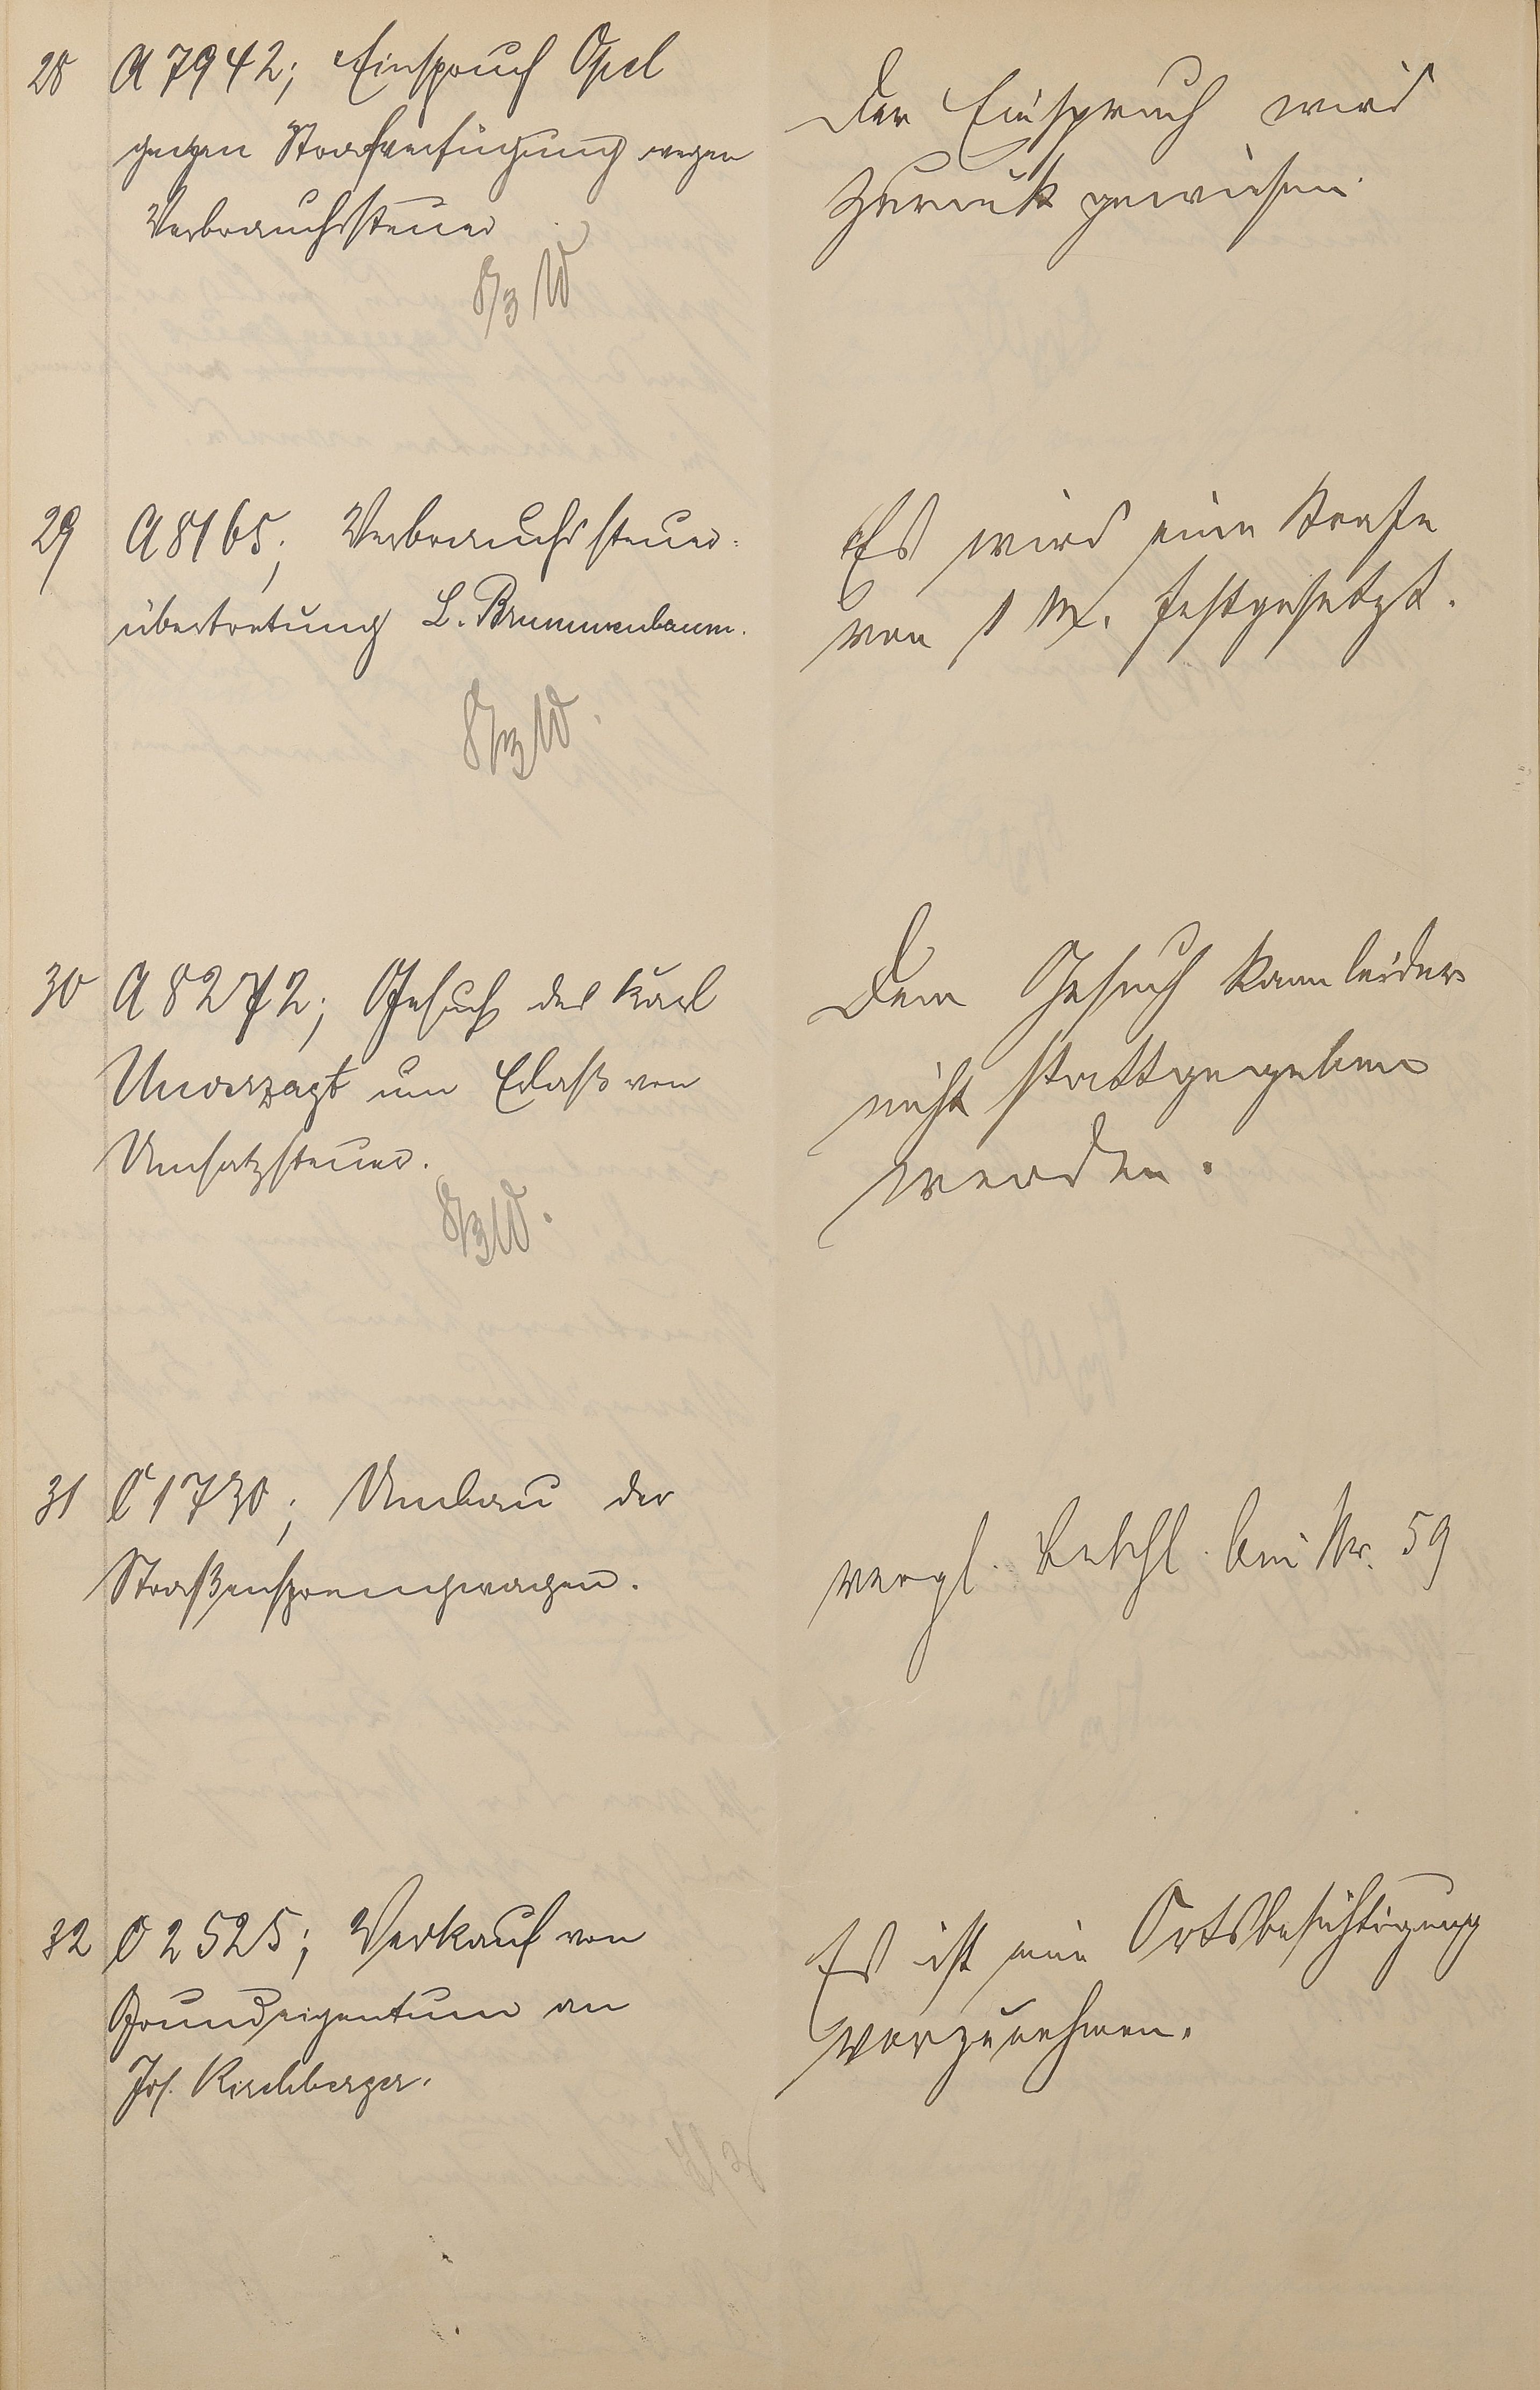 28 A 7942; Einspruch Opel
gegen Strafverfügung wegen
Verbrauchssteuer
8/3 W
Der Einspruch wird
zurückgewiesen.
29 A 8165; Verbrauchssteuer-
übertretung L. Brummenbaum.
8/3 W.
Es wird eine Strafe
von 1 M. festgesetzt.
30 A 8272; Gesuch des Karl
Unverzagt um Erlaß von
Umsatzsteuer.
8/3 W.
Dem Gesuch kann leider
nicht stattgegeben
werden.
31 C 1730; Umbau der
Straßensprengwagen.
vergl. Beschl. bei Nr. 59
32 C 2525; Verkauf von
Grundeigentum an
Jos. Kirchberger.
Es ist eine Ortsbesichtigung
vorzunehmen.